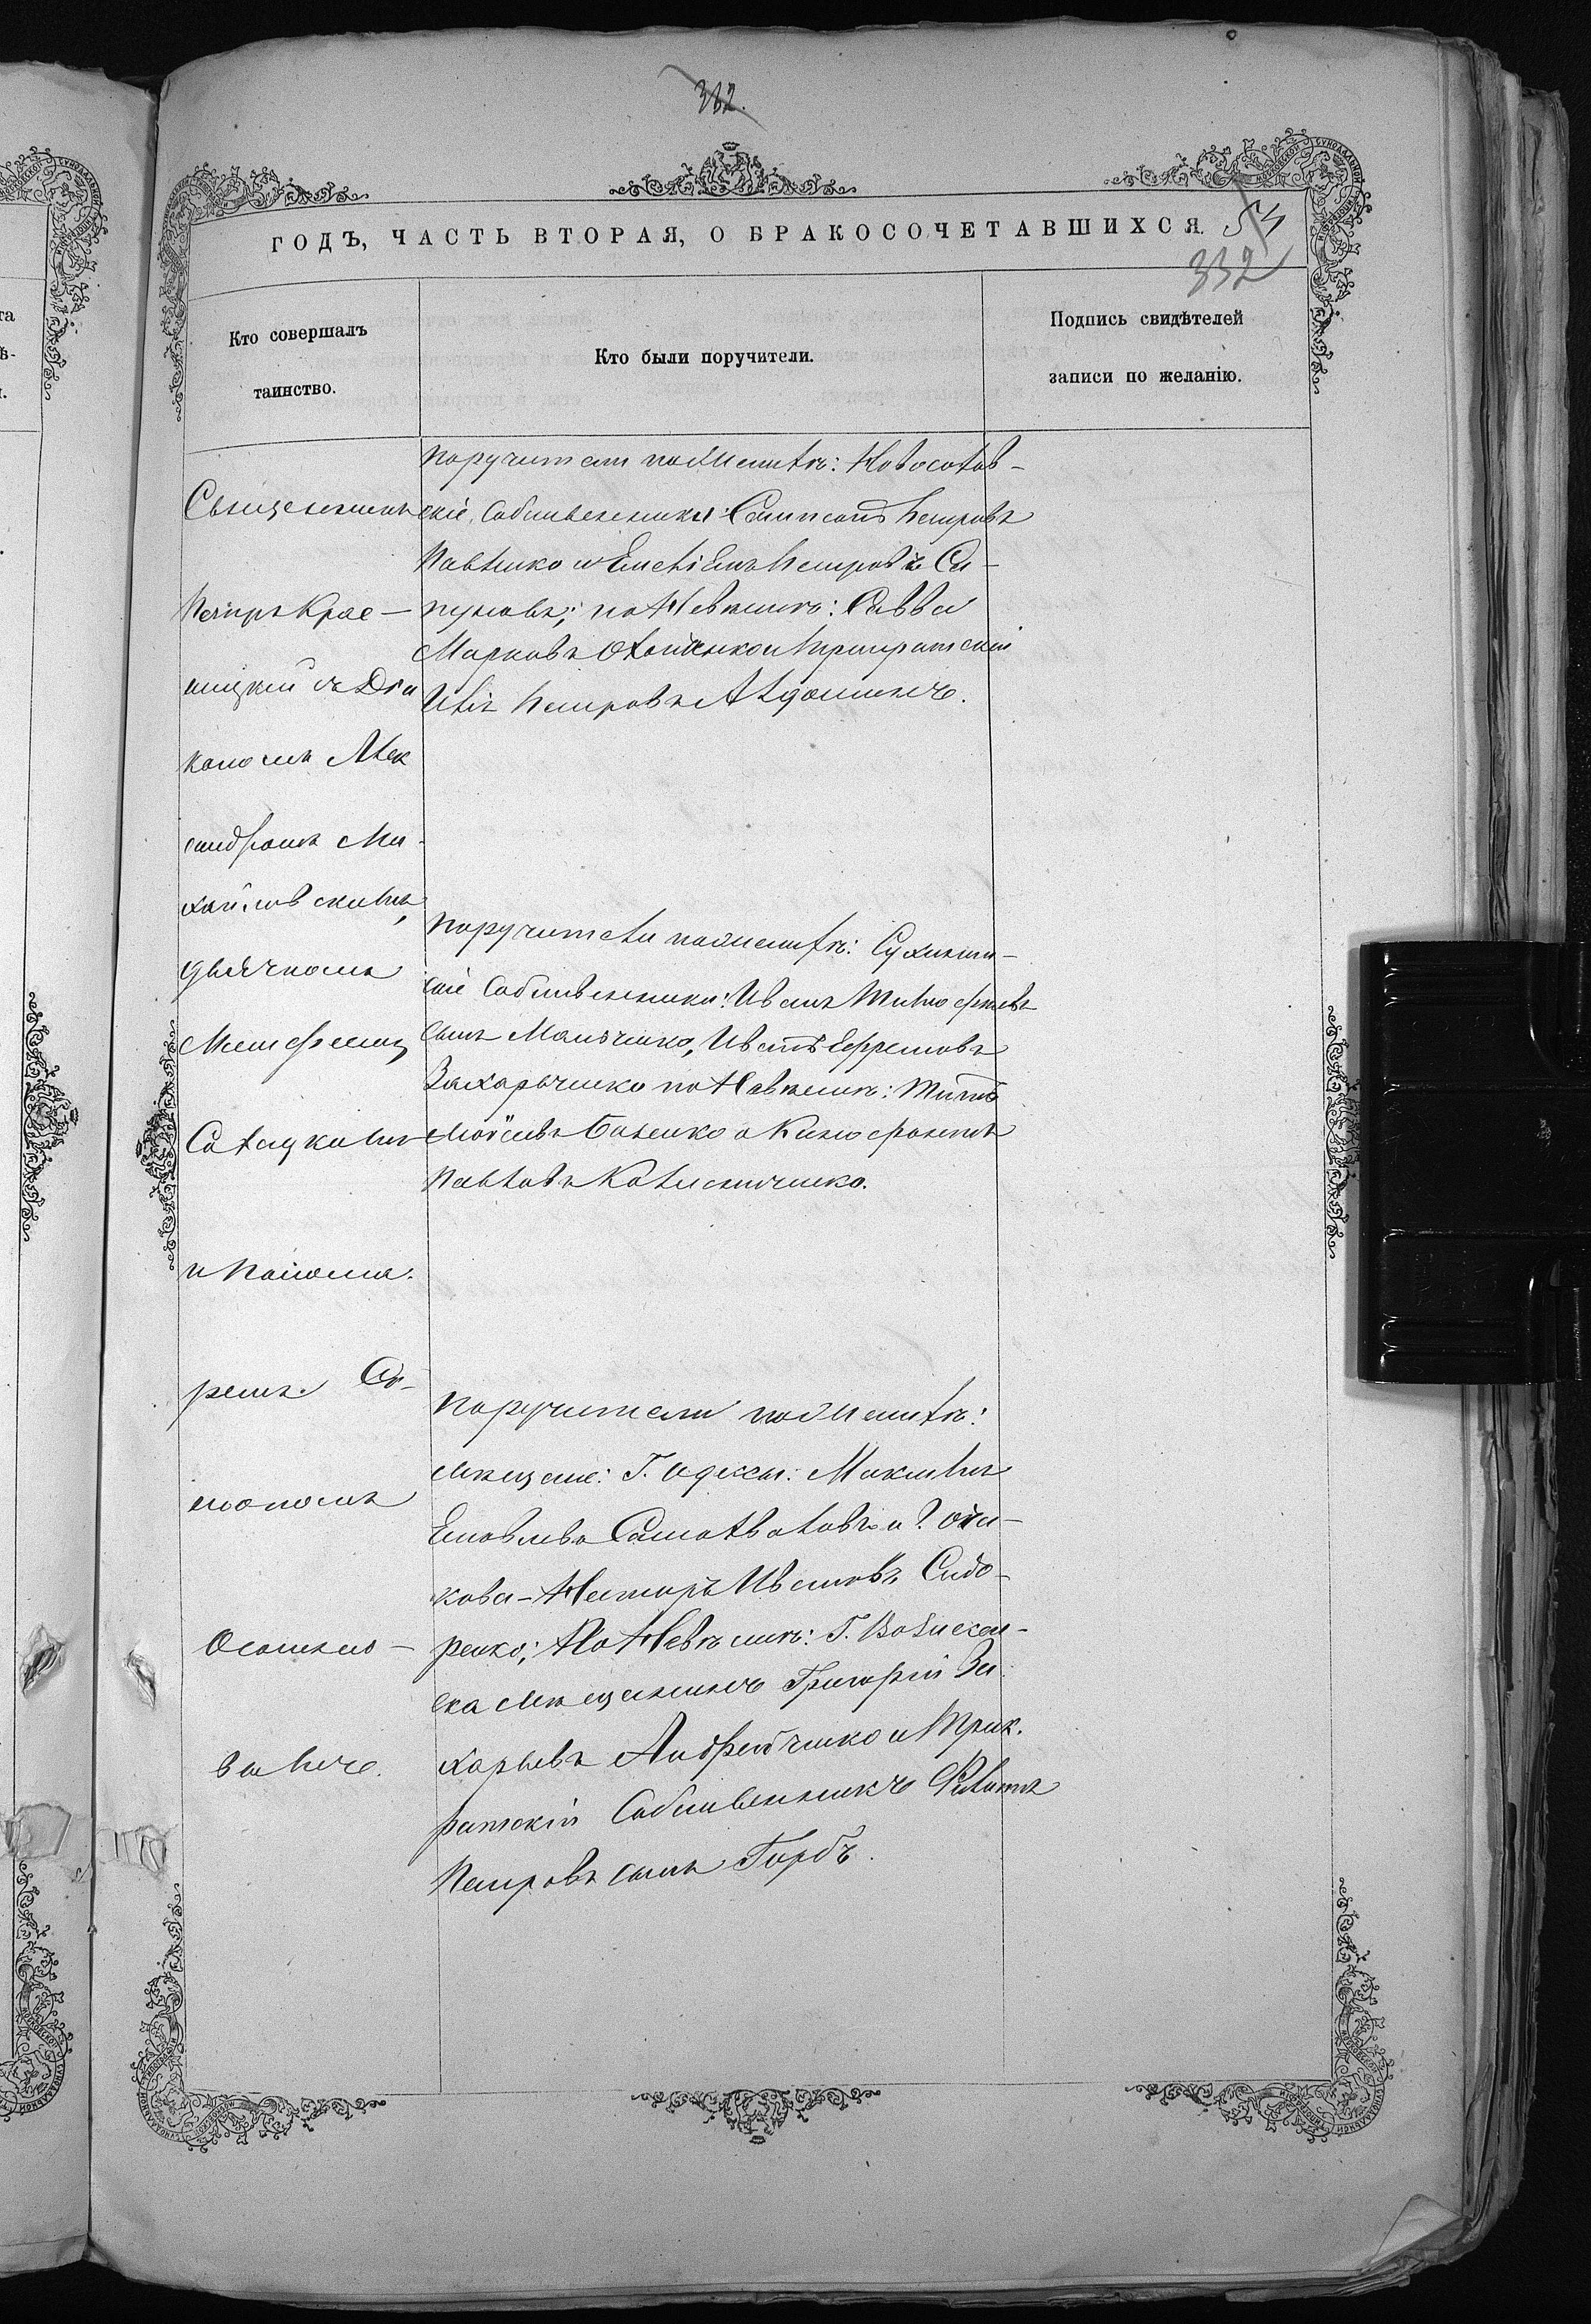 332.
ГОДЪ, ЧАСТЬ ВТОРАЯ, О БРАКОСОЧЕТАВШИХСЯ.
54
332
Кто совершалъ
таинство.
Кто были поручители.
Подпись свидѣтелей
записи по желанію.
Священникъ
Петръ Крас-
ницкій съ Діа
кономъ Алек
сандромъ Ми-
хайловскимъ,
дьячкомъ
Сотацкимъ
и Понома-
ремъ. Со-
Поручители по Женихѣ: Новосолов-
скіе, Собственники: Сампсонъ Петровъ
Павленко и Емеліанъ Петровъ Са-
пуновъ; по Невѣстѣ: Савва
Марковъ Олейникъ и Трикратскій
Илія Петровъ Авдошинъ.
Поручители по Женихѣ:
скіе Собственники: Иванъ Тимофѣевъ
сынъ Мальченко, Иванъ Ефремовъ
Захарченко по Невѣстѣ: Титъ
Моисѣевъ Баленко и Ксенофонтъ
Павловъ Колисниченко.
Поручители по Женихѣ:
Мѣщане: Г. Одессы: Максимъ
Яковлевъ Самохваловъ и Г. Оча-
кова - Несторъ Ивановъ Сидо-
ренко; По Невѣстѣ: Г. Вознесен-
ска мѣщанинъ Григорій За-
харьевъ Андрейченко и Трик-
ратскій Собственникъ Филиппъ
Петровъ сынъ Горбъ.